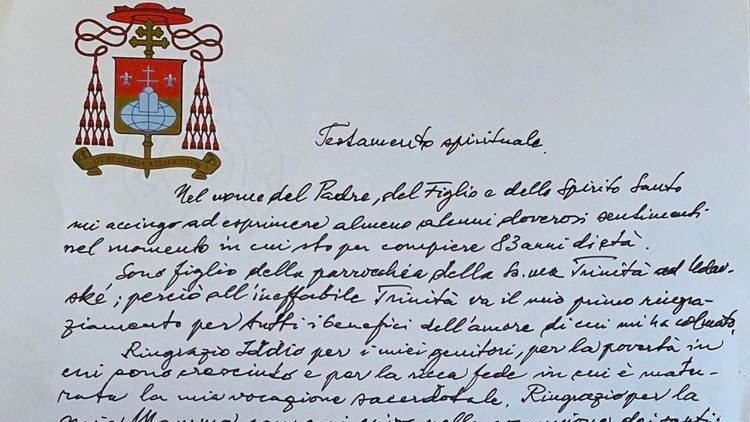 UT ECCLESIA AEDIFICETUR
Testamento spirituale.
Nel nome del Padre, del Figlio e dello Spirito Santo
mi accingo ad esprimere almeno alcuni doverosi sentimenti
nel momento in cui sto per compiere 83 anni di età.
Sono figlio della parrocchia della Ss.ma Trinità ad Udav-
ské; perciò all'ineffabile Trinità va il mio primo ringra-
ziamento per tutti i benefici dell'amore di cui mi ha colmato.
Ringrazio Iddio per i miei genitori, per la povertà in
cui sono cresciuto e per la ricca fede in cui è matu-
rata la mia vocazione sacerdotale. Ringrazio per la
mia Mamma nella comunione dei santi